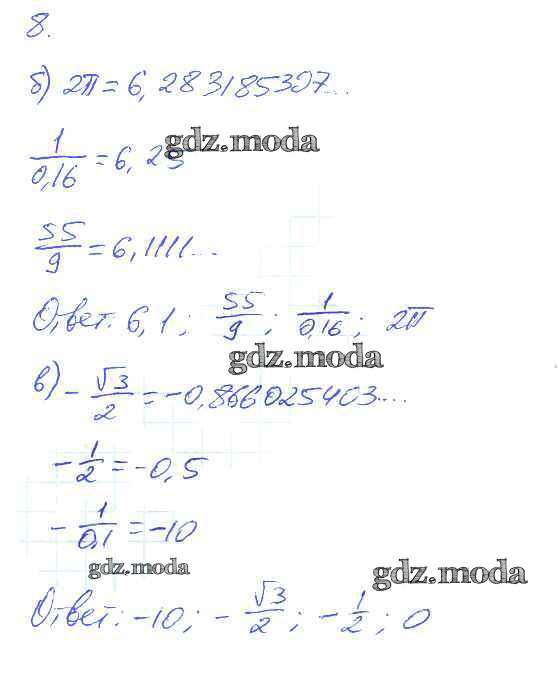 8.
б) 2π = 6,283185307...
1/0,16 = 6,25
gdz.moda
55/9 = 6,1111...
Ответ: 6,1; 55/9; 1/0,16; 2π
gdz.moda
в) -√3/2 = -0,866025403...
-1/2 = -0,5
-1/0,1 = -10
gdz.moda
gdz.moda
Ответ: -10; -√3/2; -1/2; 0